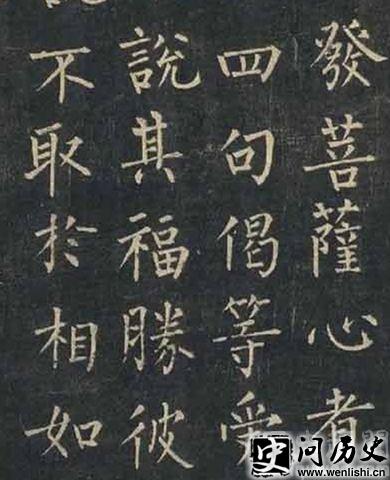 發菩薩心者
四句偈等受
說其福勝彼
不取於相如
史问历史
www.wenlishi.cn